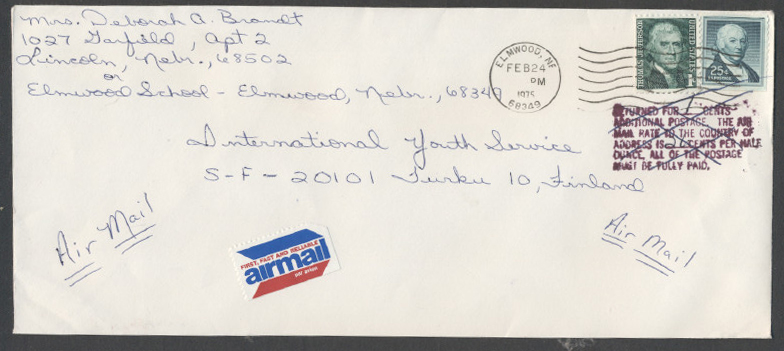 Mrs. Deborah A. Brandt
1027 Garfield, Apt 2
Lincoln, Nebr., 68502
or
Elmwood School - Elmwood, Nebr., 68349
ELMWOOD, NE
FEB 24
PM
1975
68349
THOMAS JEFFERSON
UNITED STATES
1¢
25¢
RETURNED FOR 1 CENTS
ADDITIONAL POSTAGE. THE AIR
MAIL RATE TO THE COUNTRY OF
ADDRESS IS 26 CENTS PER HALF
OUNCE. ALL OF THE POSTAGE
MUST BE FULLY PAID.
International Youth Service
S-F-20101 Turku 10, Finland
Air Mail
Air Mail
FIRST, FAST AND RELIABLE
airmail
par avion